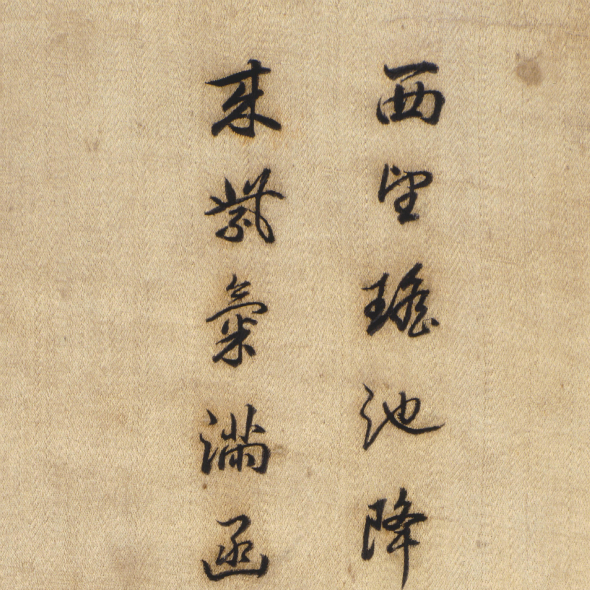 西望瑤池降
来紫氣滿函